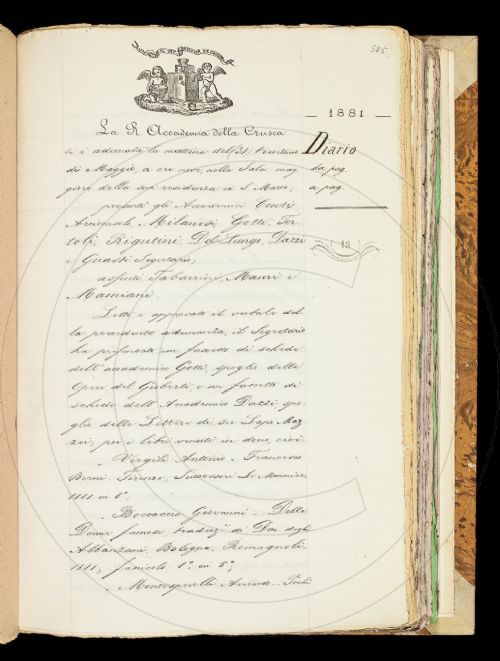 585
La R. Accademia della Crusca
— 1881 —
Diario
da pag.
a pag.
13
si è adunata la mattina del 31, trentuno
di Maggio, a ore nove, nella Sala mag
giore della sua residenza in S. Marco,
presenti gli Accademici Conti
Arciconsolo, Milanesi, Gotti, Tor-
toli, Rigutini, Del Lungo, Dazzi
e Guasti Segretario;
assenti Tabarrini, Mauri e
Mamiani.
Letto e approvato il verbale del
la precedente adunanza, il Segretario
ha presentato un fascetto di schede
dell'accademico Gotti, spoglio delle
Opere del Giuberti, e un fascetto di
schede dell'Accademico Dazzi, spo
glio delle Lettere di ser Lapo Maz
zei, per i libri venuti in dono, cioè
Virgili Antonio – Francesco
Berni. Firenze, Successori Le Monnier
1881 in 8°.
Boccaccio Giovanni – Delle
Donne famose, traduz. di Don. degli
Albanzani. Bologna, Romagnoli,
1881, fascicolo 1° in 8°;
Monterperelli Averardo